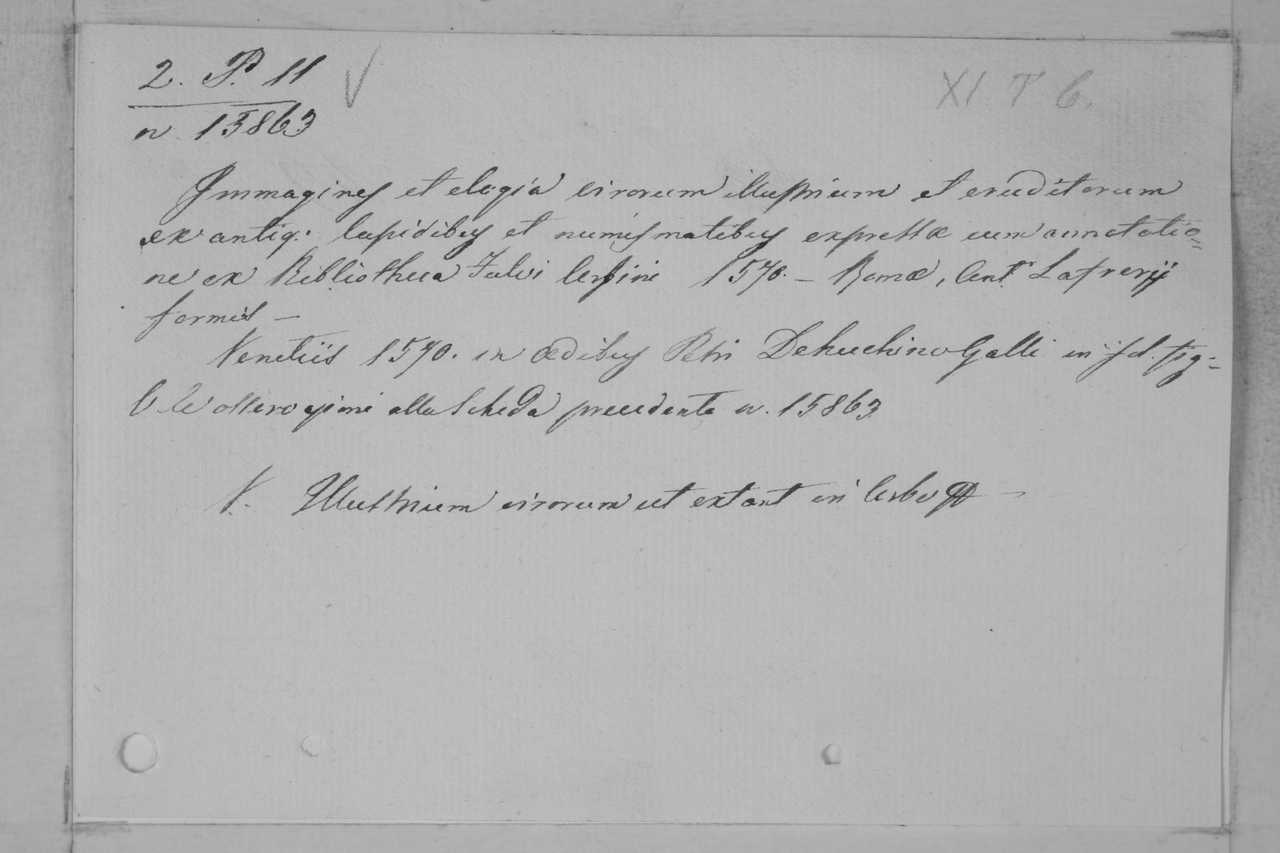 2. P. 11
XI T 6.
n. 15863
Immagines et elogia virorum illustrium et eruditorum
ex antiq: lapidibus et numismatibus expressae cum annotatio=
ne ex Bibliotheca Fulvi Ursini 1570. – Romae, Ant. Lafrerij
formis –
Venetiis 1570. in aedibus Petri Dehuchino Galli in fol. fig=
V. le osservazioni alla Scheda precedente n. 15863
V. Illustrium virorum ut extant in Urbe